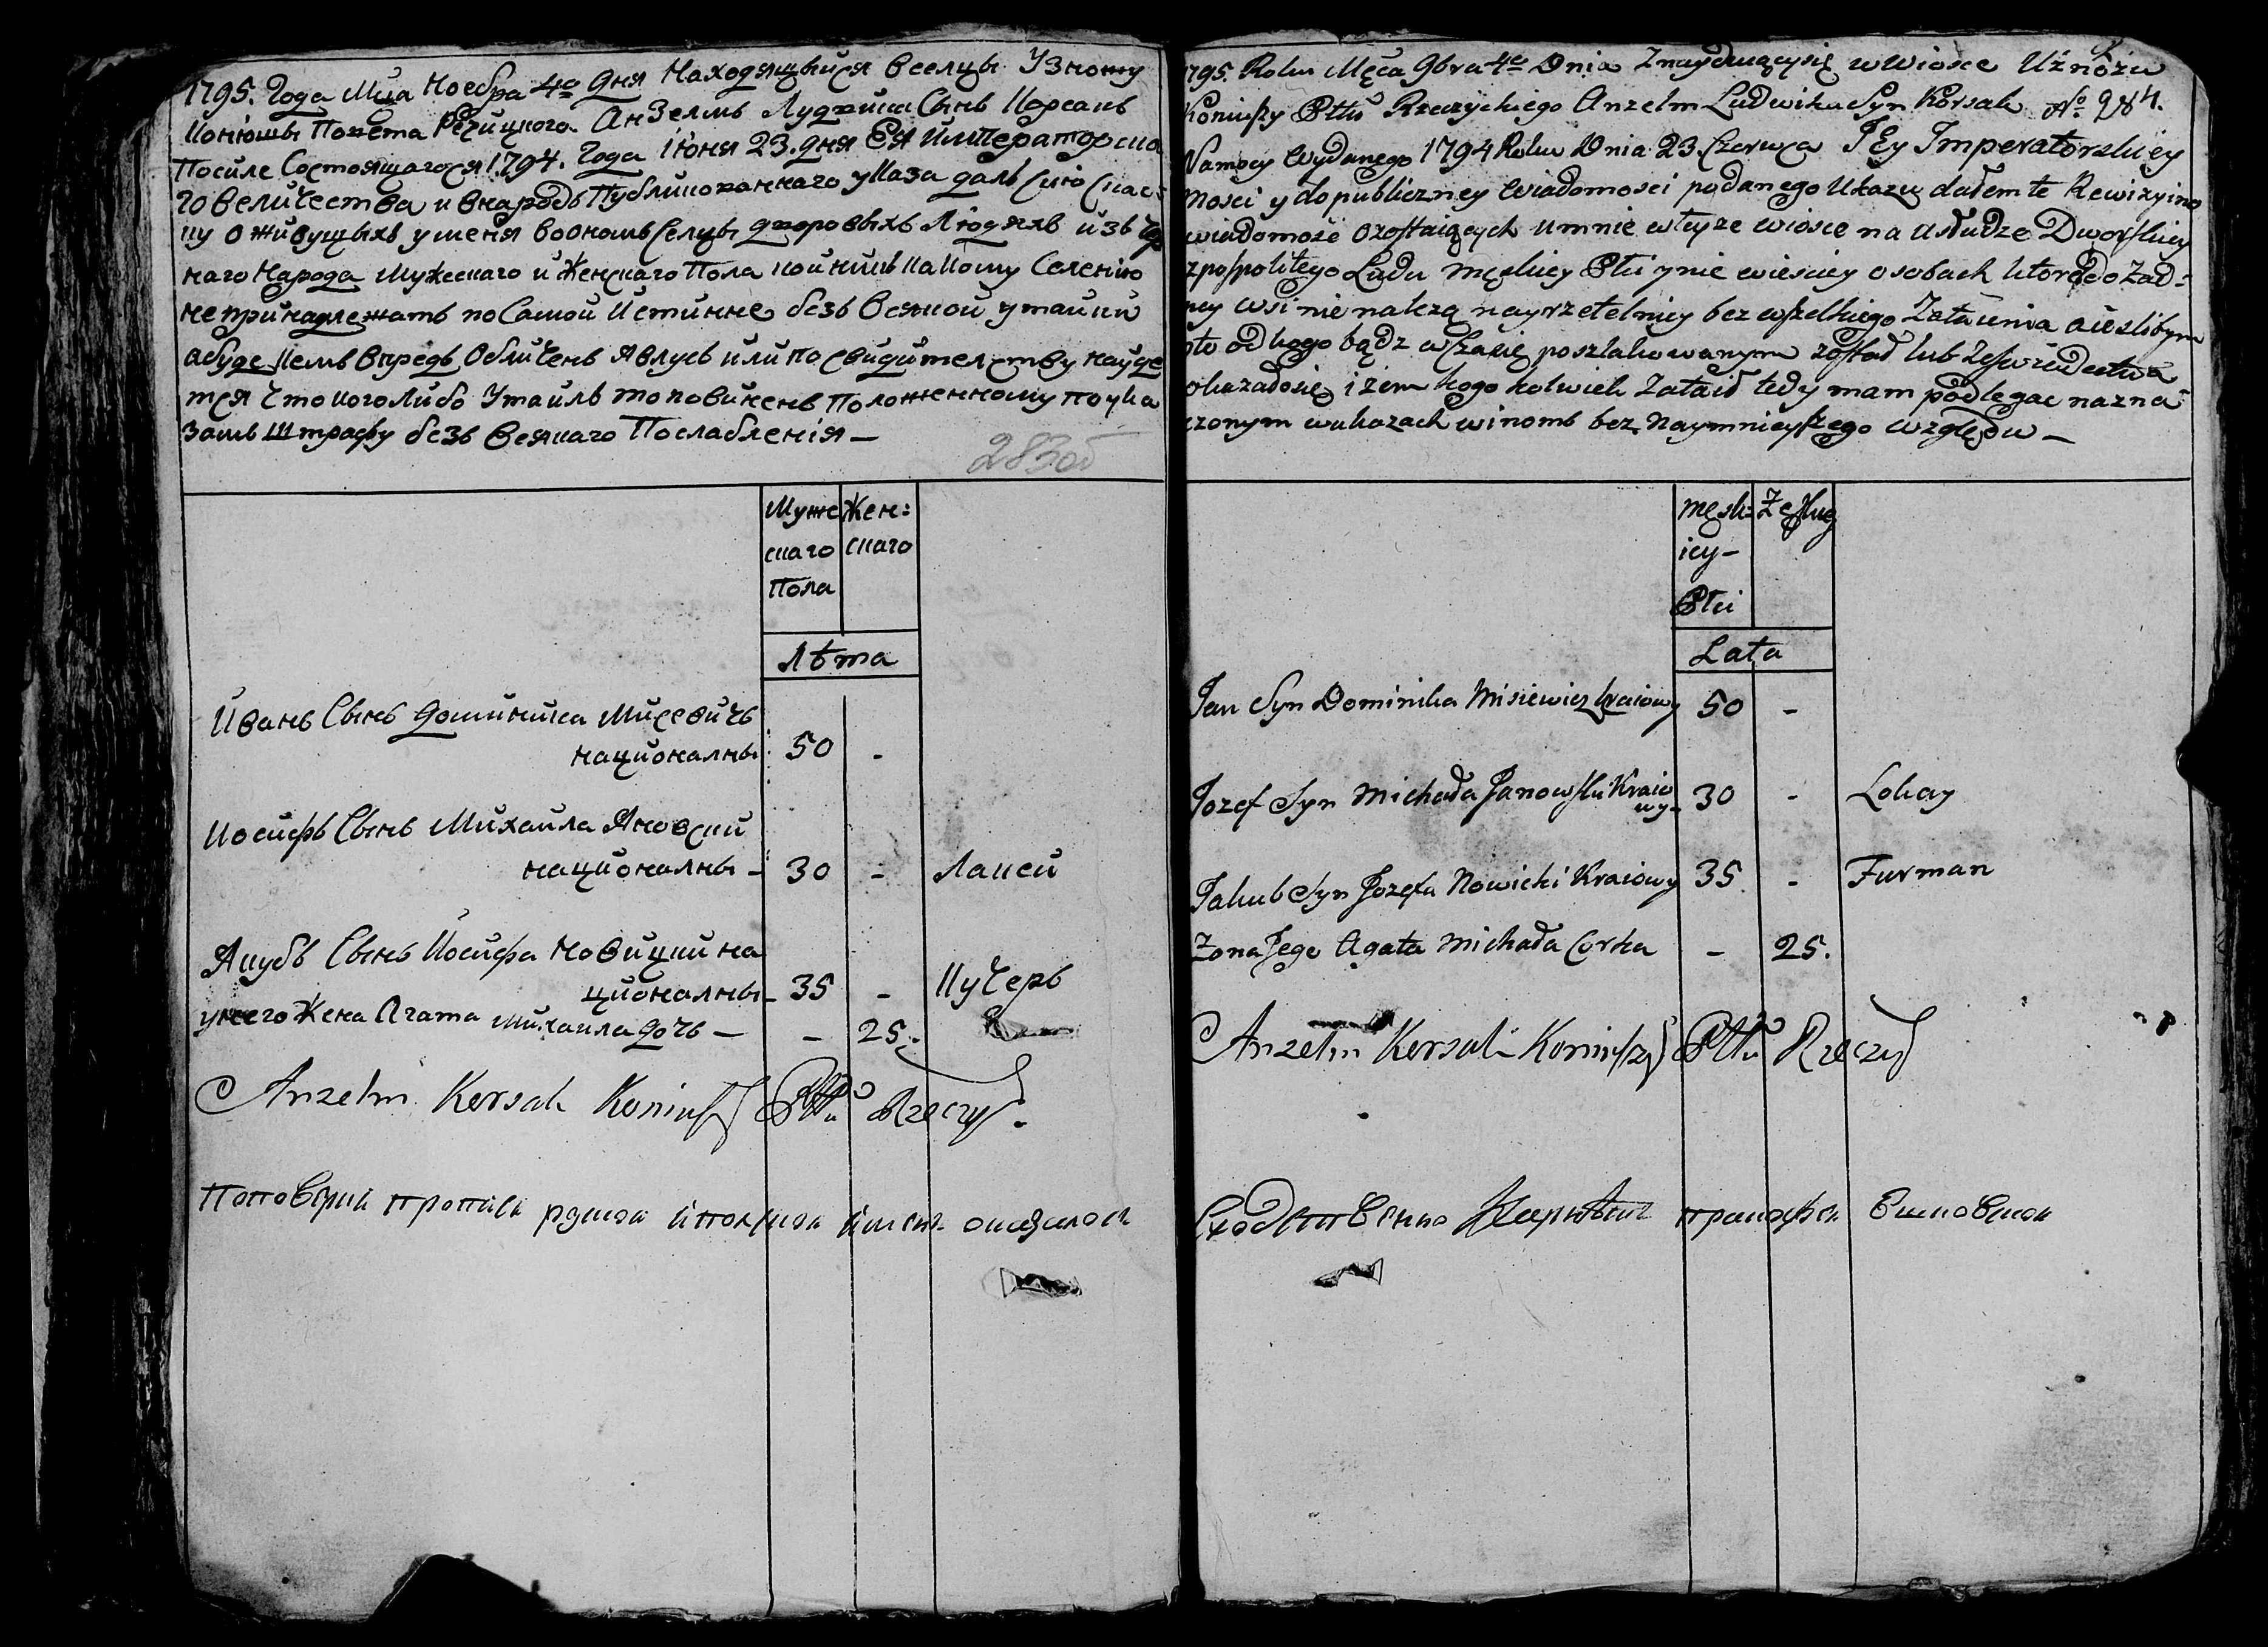 1795. Года Мца Ноебра 4го Дня Находящыйся вселцы Узножу
Конюшы Повета Речицкого Анзелмъ Лудвика Сынъ Корсакъ
Посиле Состоящагося 1794. Года Июня 23. дня Ея Императорска
го величества и внародъ Публикованнаго указа далъ сию скас:
ку о живущыхъ уменя воономъ селцы дворовыхъ Людяхъ изъ
наго Народа Мужескаго и Женскаго Пола кои никъ какому Селению
непринадлежатъ по Самой Истинне безъ всякой утайки
абуде кемъ впредь Обличенъ Явлусь или по свидителству найде
тся что кого либо Утаилъ то повиненъ Положенному по ука
замъ Штрафу безъ всякаго Послабления —
283об
Муже Жен:
скаго скаго
Пола
Лѣта
Иванъ Сынъ Доминика Мисевичъ
националны 50 -
Иосифъ Сынъ Михаила Яновский
националны - 30 - Лакей
Якубъ Сынъ Иосифа Новицкий на
ционалны - 35 - Кучеръ
унего Жена Агата Михаила дочь — - 25.
Anzelm Korsak Koniuszy Pttu Rzeczy.
1795. Roku Męca 9bra 4go Dnia Znayduiący się w Wiosce Uznożu
Koniuszy Pttu Rzeczyckiego Anzelm Ludwika Syn Korsak No 284.
Na mocy Wydanego 1794 Roku Dnia 23. Czerwca JEy Imperatorskiey
Mości y do publiczney wiadomosci podanego Ukazu dałem te Rewizyino
wiadomość o zostaiących u mnie w teyże wiosce na usłudze Dworskiey
zpospolitego Ludu męskiey Płci y nie wiesciey osobach które do żad:
ney wsi nie należą nayrzetelniey bez wszelkiego Zataienia a iesliby m
oto od kogo bądz w czasie poszlakowanym został lub ze swiadectwa
okazało się iżem kogo kolwiek zataił tedy mam podlegac nazna
czonym w ukazach winomb bez naymnieyszego względu —
Męsk: Żeńskiey
iey-
Płci
Lata
Jan Syn Dominika Misiewicz kraiowy 50 -
Jozef Syn Michała Janowski Kraio
wy- 30 - Lokay
Jakub Syn Jozefa Nowicki Kraiowy 35 - Furman
Żona Jego Agata Michała Corka - 25.
Anzelm Korsak Koniuszy Pttu Rzeczy